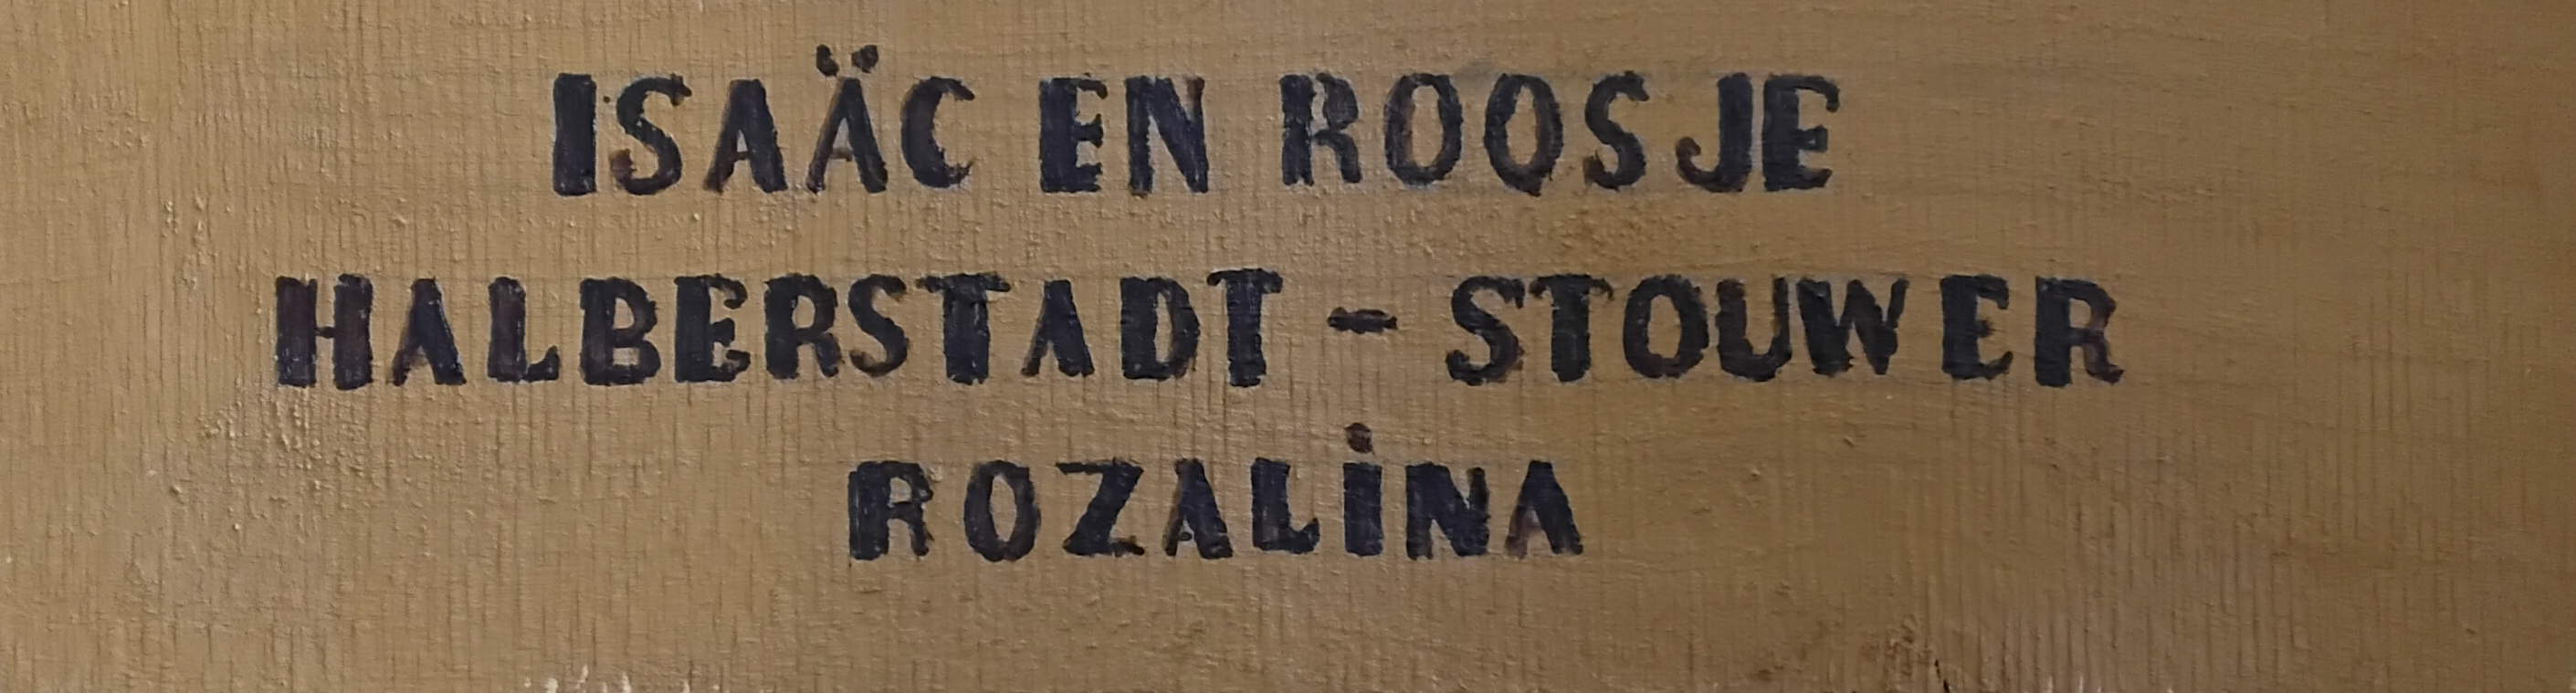 ISAÄC EN ROOSJE
HALBERSTADT - STOUWER
ROZALiNA